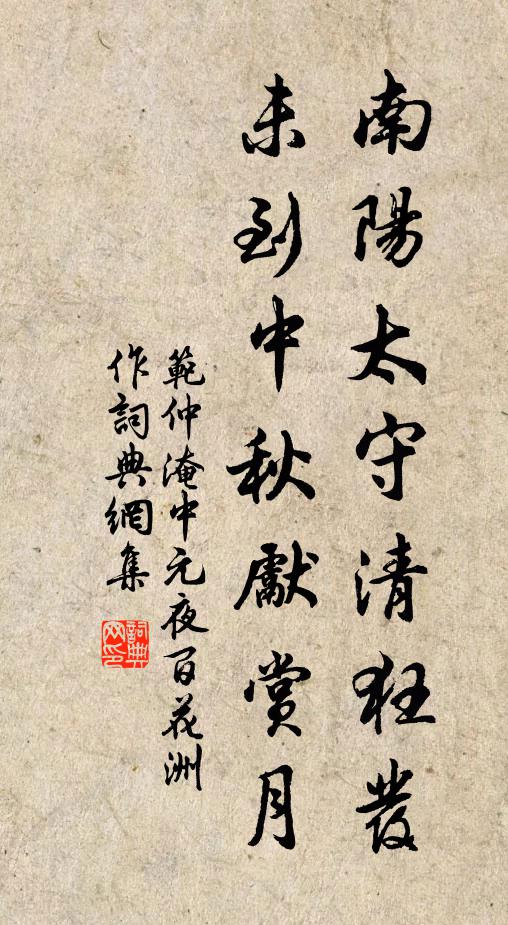 南陽太守清狂發
未到中秋獻賞月
範仲淹中元夜百花洲
作詞典網集
詞典
网印